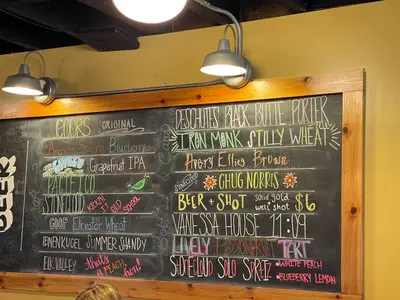 BEER
CIDERS ORIGINAL
Blueberry
Grapefruit IPA
PACIFICO
STONECLOUD KICKIN' IT OLD SCHOOL
COOP Elevator Wheat
LEINENKUGEL SUMMER SHANDY
ELK VALLEY that's a PEACH hun!
DESCHUTES BLACK BUTTE PORTER
IRON MONK STILLY WHEAT
Angry Ellies Brown
CHUG NORRIS
BEER + SHOT solid gold well shot $6
VANESSA HOUSE 11:09
LIVELY TERT
STONECLOUD SOLO SPRITZ • WHITE PEACH
• BLUEBERRY LEMON